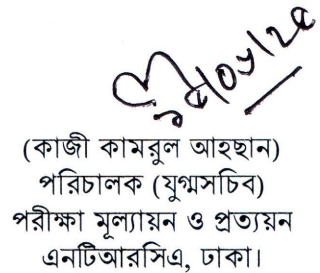 (কাজী কামরুল আহছান)
পরিচালক (যুগ্মসচিব)
পরীক্ষা মূল্যায়ন ও প্রত্যয়ন
এনটিআরসিএ, ঢাকা।